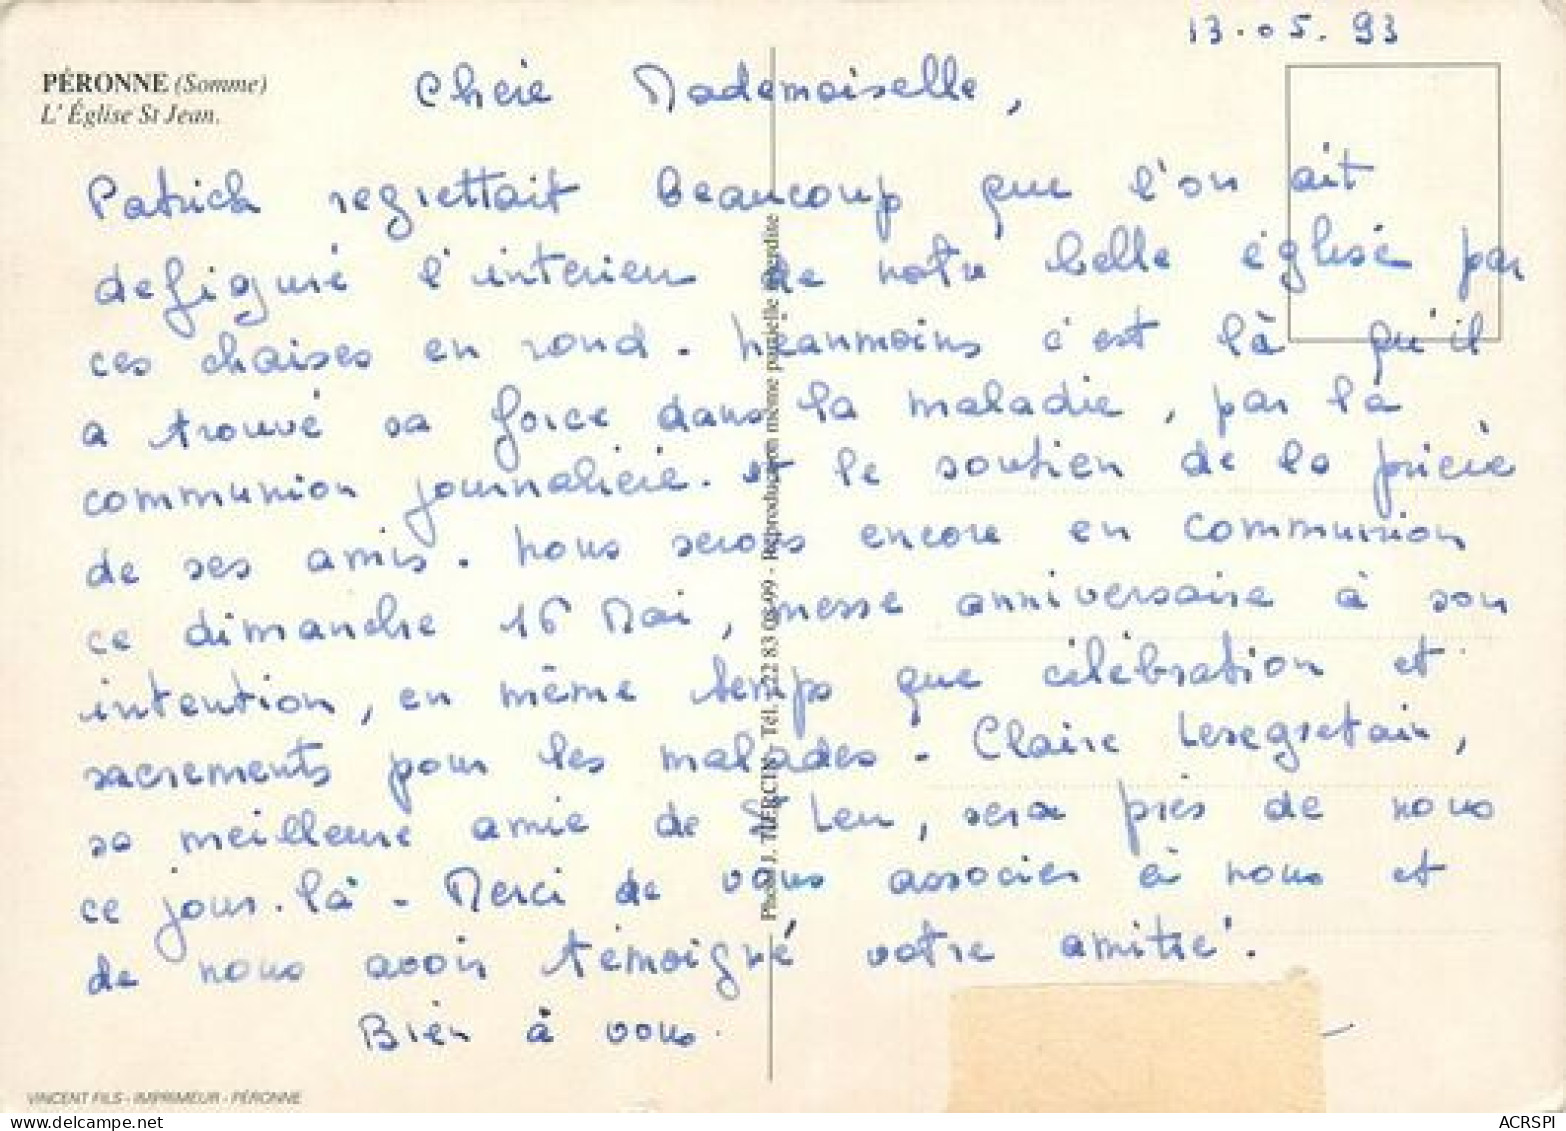 13.05.93
PÉRONNE (Somme)
L'Église St Jean.
Chère Mademoiselle,
Patrick regrettait beaucoup que l'on ait
defiguré l'interieur de notre belle église par
ces chaises en rond. Néanmoins c'est là qu'il
a trouvé sa force dans la maladie, par la
communion journalière. et le soutien de la prière
de ses amis. Nous serons encore en communion
ce dimanche 16 Mai, messe anniversaire à son
intention, en même temps que célébration et
sacrements pour les malades. Claire
sa meilleure amie de St Leu, sera près de nous
ce jour-là. Merci de vous associer à nous et
de nous avoir témoigné votre amitié.
Bien à vous.
Photo J. TIERCIN - Tél. 22 83 08 99 - Reproduction même partielle interdite
VINCENT FILS - IMPRIMEUR - PÉRONNE
ACRSPI